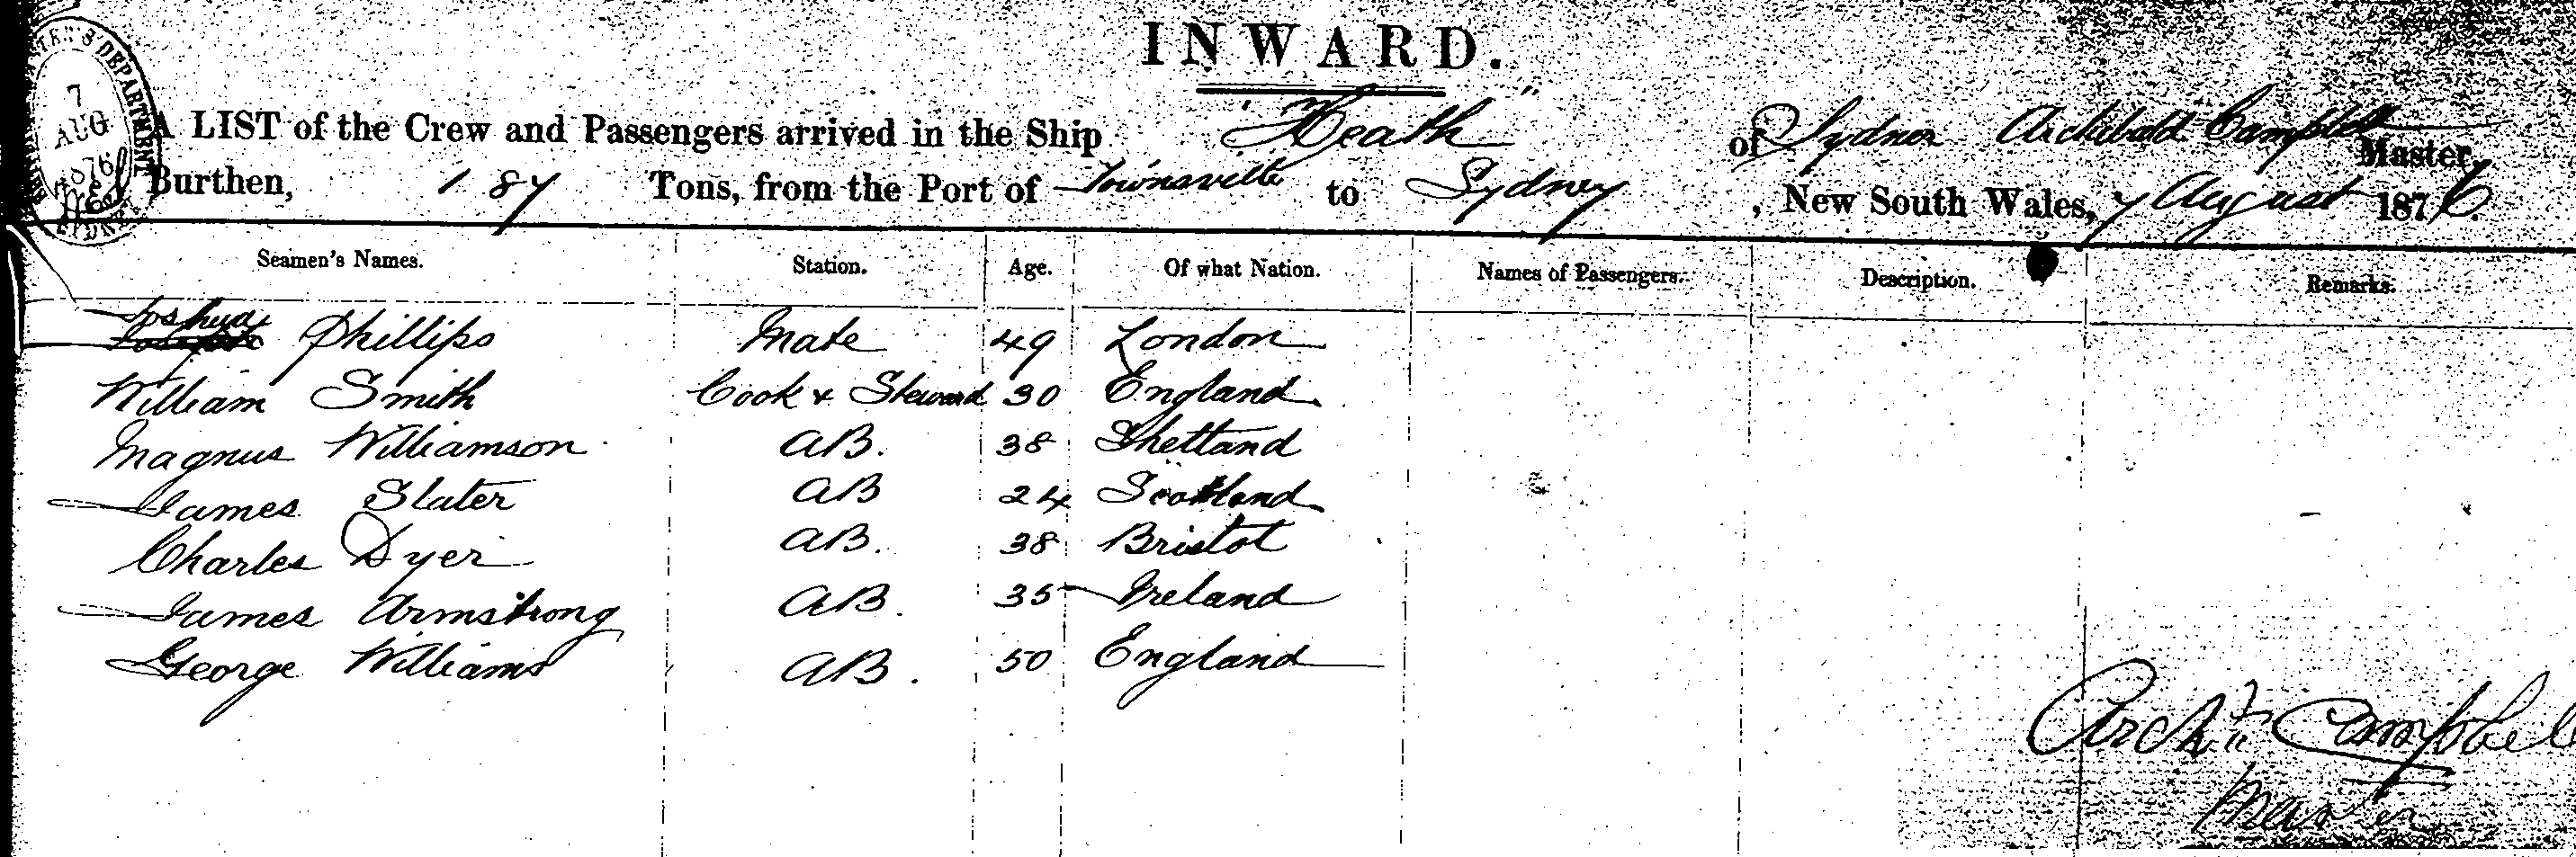 INWARD.
A LIST of the Crew and Passengers arrived in the Ship "Heath" of Sydney Archibald Campbell Master,
Burthen, 187 Tons, from the Port of Townsville to Sydney, New South Wales, 7 August 1876.
7
AUG
1876
Seamen's Names. Station. Age. Of what Nation. Names of Passengers. Description. Remarks.
Joshua
Phillips Mate 49 London
William Smith Cook & Steward 30 England
Magnus Williamson AB. 38 Shetland
James Slater AB 24 Scotland
Charles Dyer AB. 38 Bristol
James Armstrong AB. 35 Ireland
George Williams AB. 50 England
Archd Campbell
Master